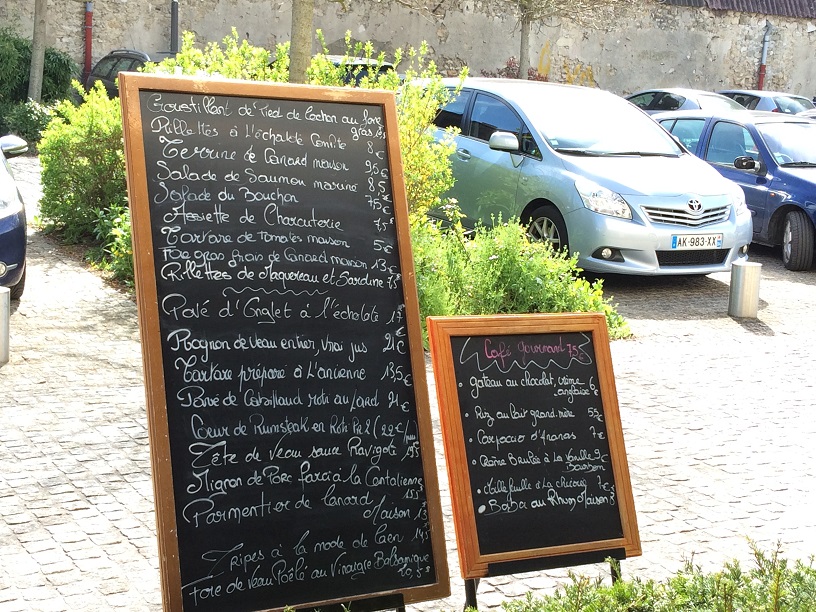 Croustillant de Pied de Cochon au foie gras
Rillettes à L'échalote Confite 8€
Terrine de Canard maison 9,5€
Salade de Saumon mariné 8,5
Salade du Bouchon 7,5€
Assiette de Charcuterie 7,5€
Tartare de Tomates maison 5€
Foie gras frais de Canard maison 13€
Rillettes de Maquereau et Sardine 7,5
Pavé d'Onglet à l'échalote 17€
Rognon de veau entier, vrai jus 21€
Tartare préparé à L'ancienne 13,5€
Pavé de Cabillaud roti au Lard 21€
Coeur de Rumsteak en Roti
Tête de Veau sauce Ravigote 19,5
Mignon de Porc farci à la Cantalienne 15,5€
Parmentier de Canard Maison
Tripes à la mode de Caen 14,5
Foie de Veau Poêlé au Vinaigre Balsamique 20,5€
Café gourmand 7,5€
• Gateau au chocolat, crème anglaise 6€
• Riz au lait grand-mère 5,5€
• Carpaccio d'Ananas 7€
• Crème Brulée à La Vanille Bourbon 9€
• Millefeuille à La Chicorée 7€
• Baba au Rhum Maison 8
AK-983-XX